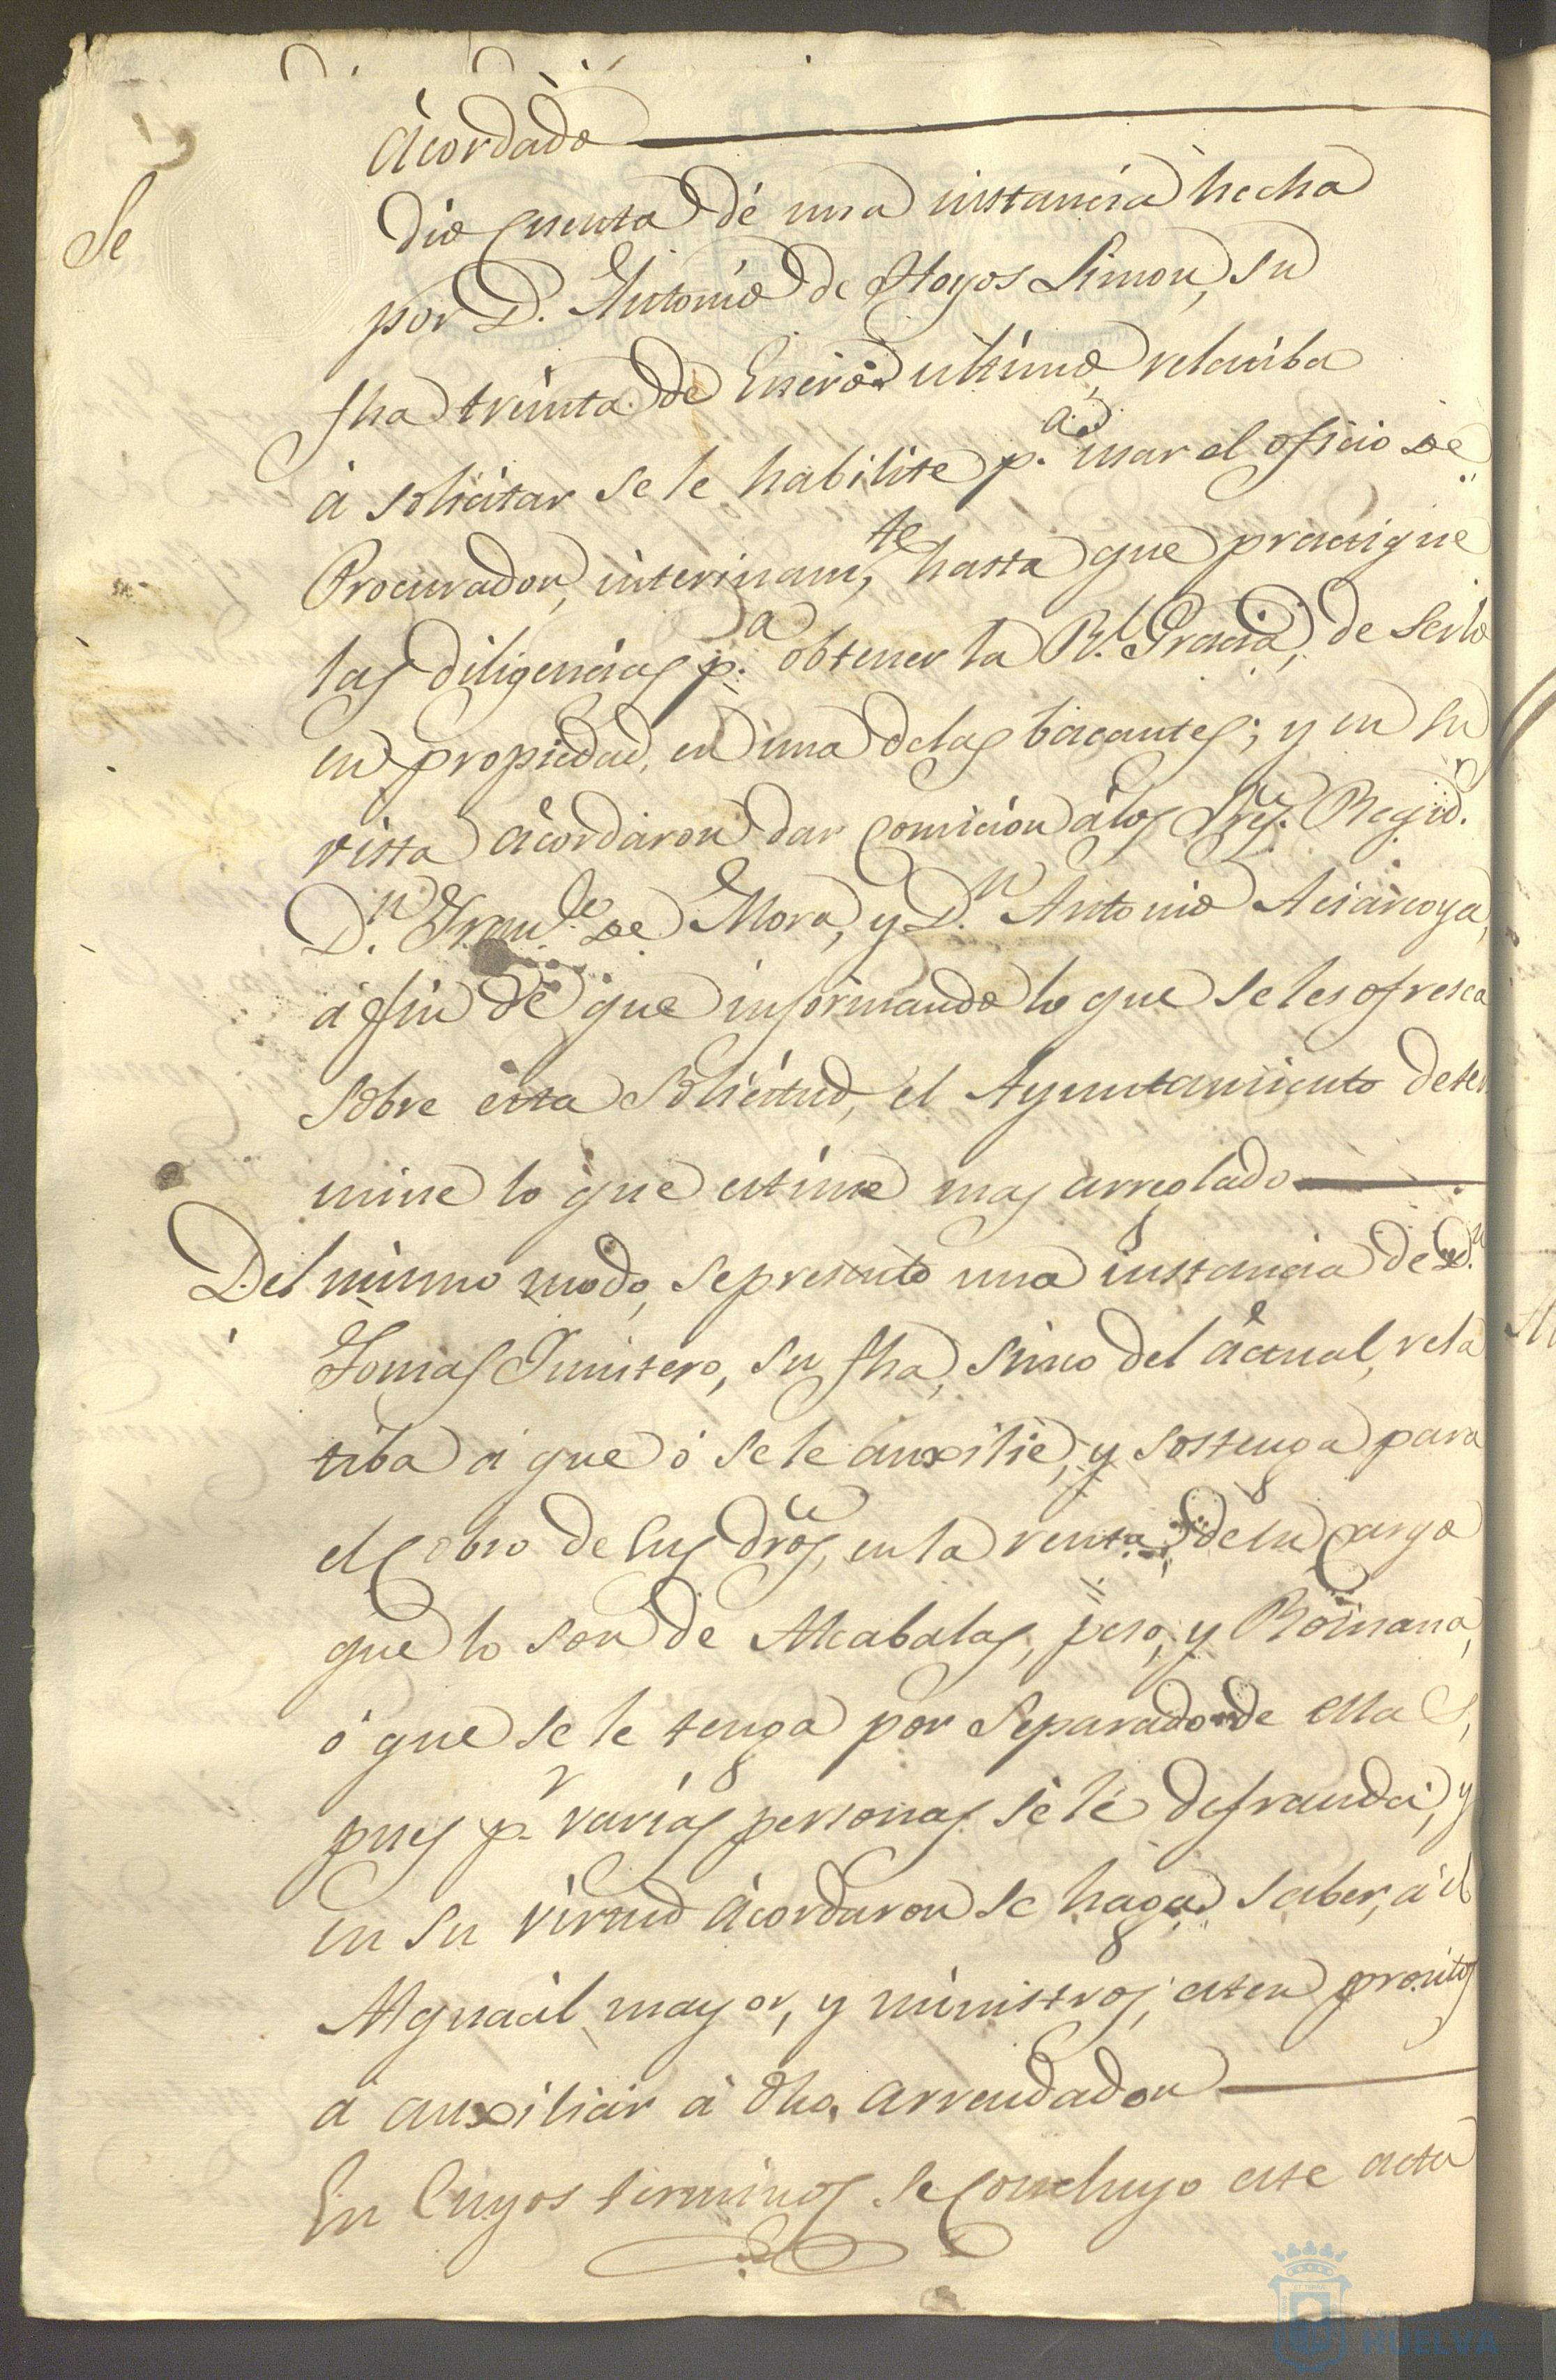 ácordado
Se dio cuenta dé una instancia hecha
por D. Antonio de Hoyos Limon, su
fha treinta de Enero ultimo, relatiba
á solicitar se le habilite p.a usar el oficio de
Procurador, interinam.te, hasta que practique
las diligencias p.a obtener la R.l Gracia, de serlo
en propiedad, en una delas bacantes; y en su
vista ácordaron dar comicion álos Sres. Regid.r
D.n Fran.co de Mora, y D.n Antonio
á fin de que informando lo que se les ofresca
sobre esta solicitud, el Ayuntamiento deter
mine lo que estime mas arreglado
Del mismo modo, se presento una instancia de D.n
Tomas Quintero, su fha, sinco del áctual, rela
tiba á que ó se le auxilie, y sostenga para
el cobro de sus dros, en la renta, de su cargo
que lo son de Alcabalas, peso, y Romana,
ó que se le tenga por separado de ellas,
pues p.r varias personas se le defrauda; y
en su virtud ácordaron se haga saber, á el
Alguacil mayor, y ministros, esten prontos
á auxiliar á dho. arrendador
En cuyos terminos se concluyo este acto
HUELVA